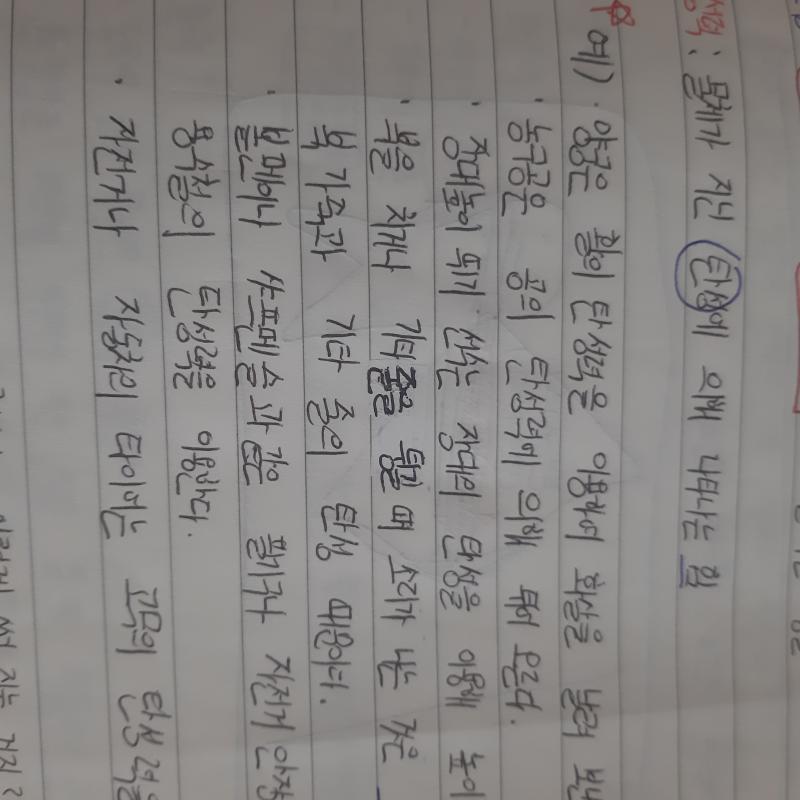 성력: 물체가 지닌 탄성에 의해 나타나는 힘
예) · 양궁은 활의 탄성력을 이용하여 화살을 날려 보내
· 농구공은 공의 탄성력에 의해 튀어 오른다.
· 장대높이 뛰기 선수는 장대의 탄성을 이용해 높이
· 북을 치거나 기타줄을 튕길 때 소리가 나는 것은
북 가죽과 기타 줄의 탄성 때문이다.
· 볼펜이나 샤프펜슬과 같은 필기구나 자전거 안장
용수철의 탄성력을 이용한다.
· 자전거나 자동차의 타이어는 고무의 탄성력을